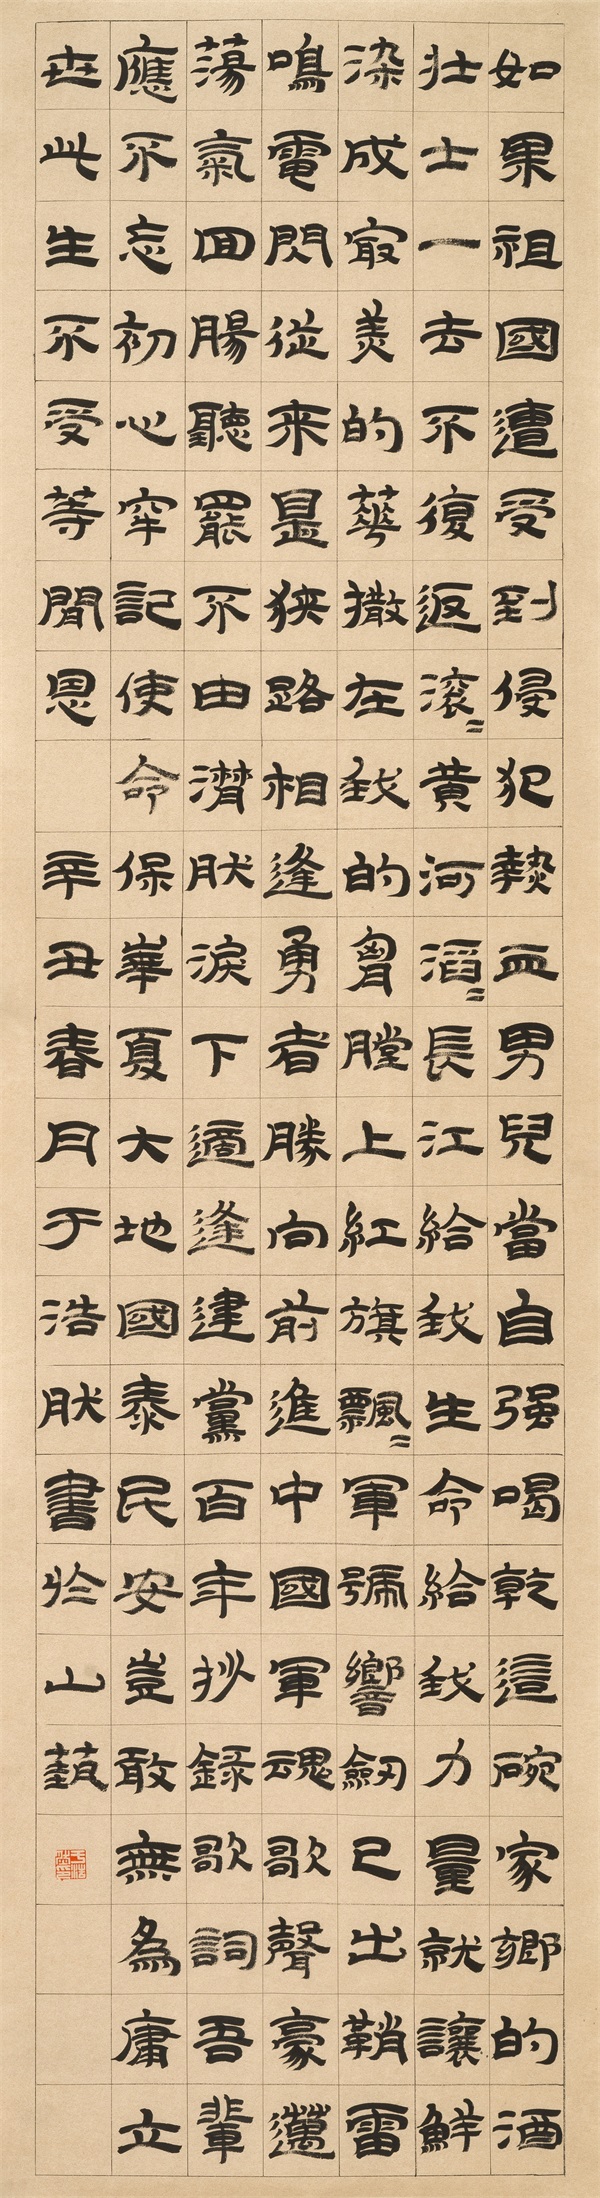 如果祖國遭受到侵犯熱血男兒當自强喝乾這碗家鄉的酒
壯士一去不復返滚〻黄河滔〻長江給我生命給我力量就讓鮮
染成最美的華撒在我的胷膛上紅旗飄〻軍號響劒已出鞘雷
鳴電閃從来是狭路相逢勇者勝向前進中國軍魂歌聲豪邁
蕩氣回腸聽罷不由潸肰淚下適逢建黨百年抄録歌詞吾輩
應不忘初心牢記使命保華夏大地國泰民安豈敢無為庸立
世此生不受等閒恩 辛丑春月于浩肰書於山蓺